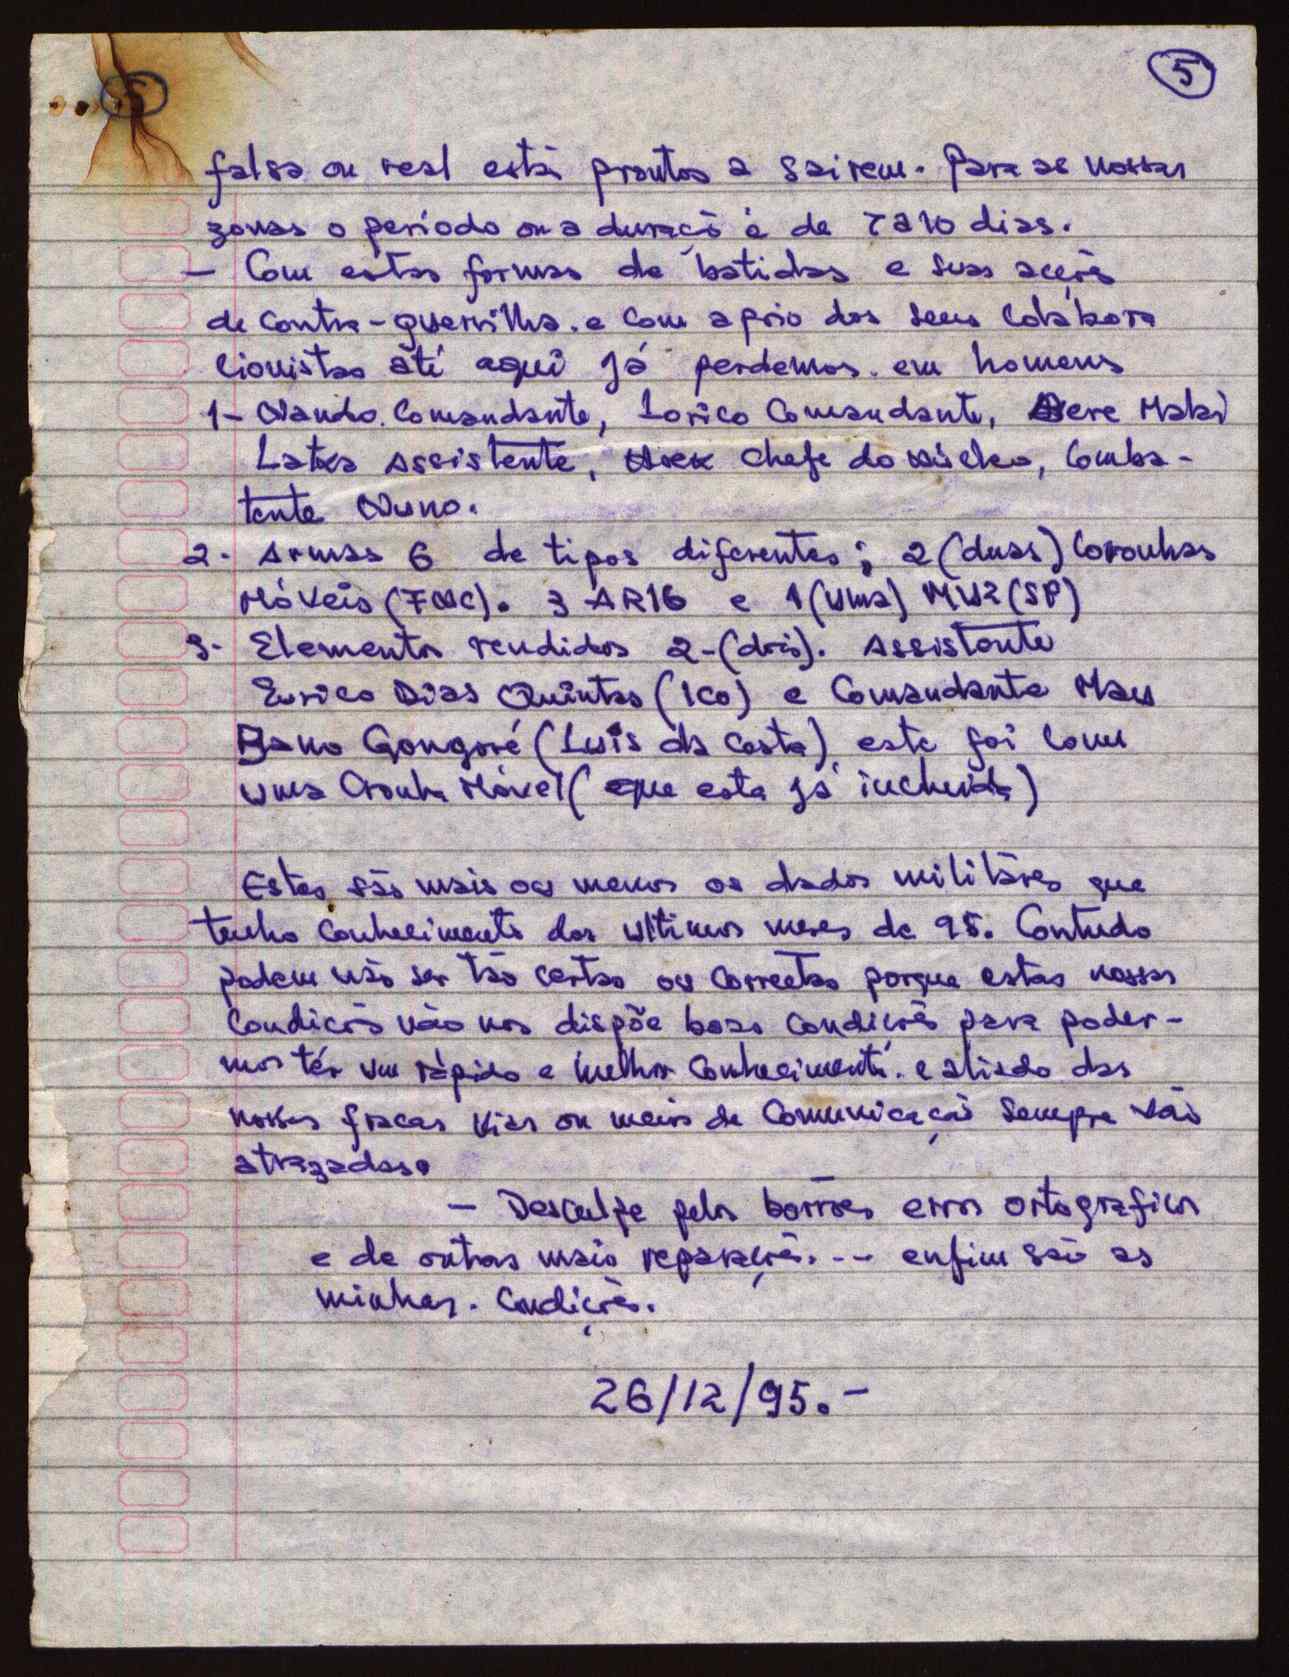 5
5
falsa ou real está prontos a sairem. Para as nossas
zonas o período ou a duração é de 7 a 10 dias.
— Com estas formas de batidas e suas acções
de contra-guerrilha. e com apôio dos seus colábora
cionistas até aqui já perdemos. em homens
1- Nando. Comandante, Lorico Comandante, Bere Malai
Latxa Assistente, chefe do núcleo, Comba-
tente Nuno.
2- Armas 6 de tipos diferentes; 2 (duas) Coronhas
Móveis (FNC). 3 AR16 e 1 (uma) MU2 (SP)
3- Elementos rendidos 2-(dois). Assistente
Eurico Dias Quintas (Ico) e Comandante Mau
Bano Gongoré (Luís da Costa) este foi com
uma Cronha Móvel (que esta já incluida)
Estes são mais ou menos os dados militàres que
tenho conhecimento dos ultimos meses de 95. Contudo
podem não ser tão certas ou correctas porque estas nossas
Condições não nos dispõe boas condições para poder-
mos têr um rápido e melhor conhecimento. e aliado das
nossas fracas vias ou meios de Comunicação sempre vão
atrazadas.
— Desculpe pelos borrões erros ortograficos
e de outras mais reparações. -- enfim são as
minhas. Condições.
26/12/95.-